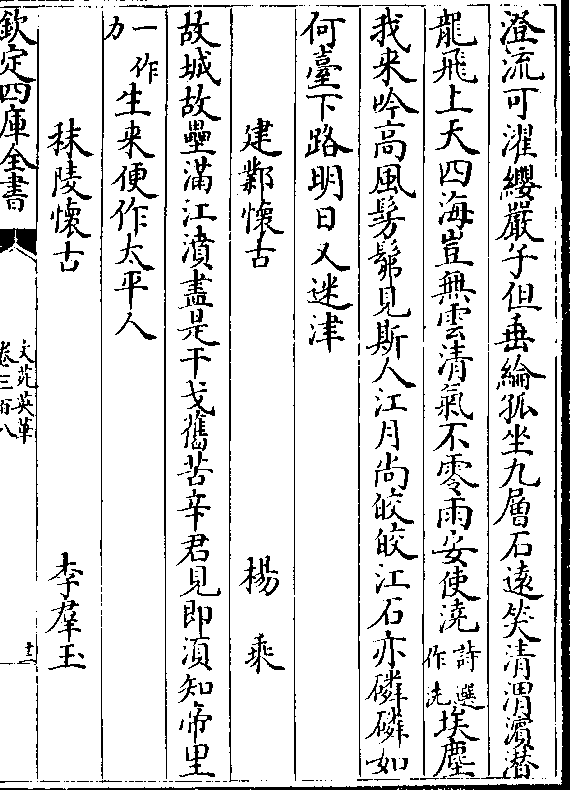 澄流可濯纓嚴子但垂綸孤坐九層石遠笑清渭濱潛
龍飛上天四海豈無雲清氣不零雨安使澆詩選作洗埃塵
我来吟高風髣髴見斯人江月尚皎皎江石亦磷磷如
何臺下路明日又迷津
建鄴懷古 楊乘
故城故壘滿江濆盡是干戈舊苦辛君見即須知帝里
一作力生来便作太平人
秣陵懷古 李羣玉
欽定四庫全書
文苑英華
卷三百八
十二